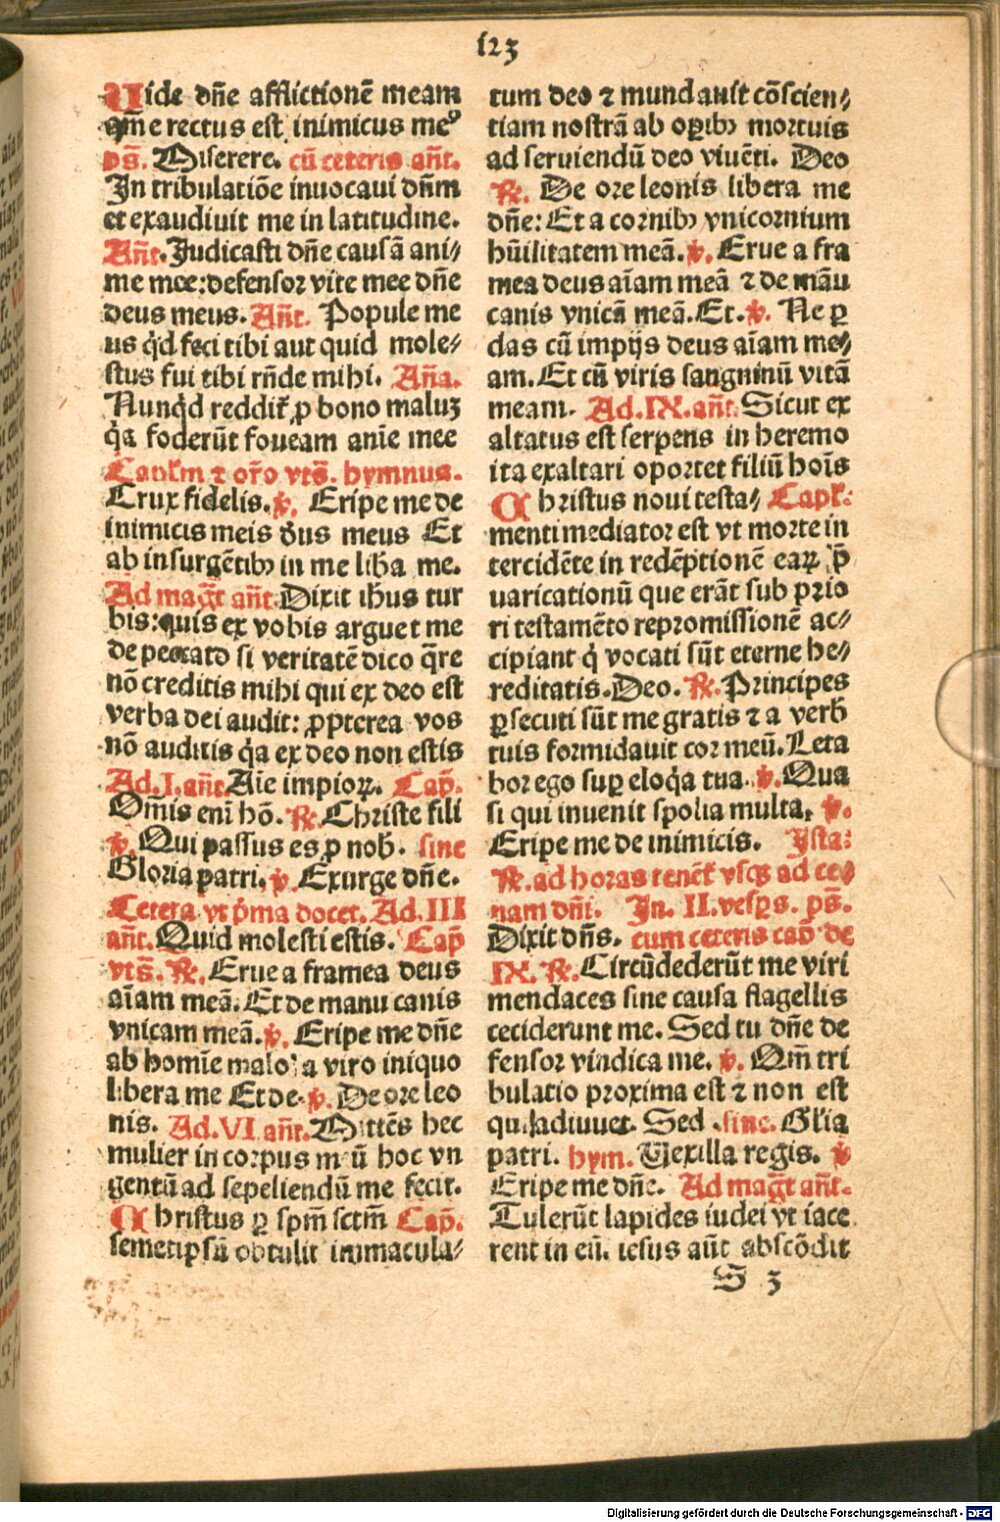 123
Vide dñe afflictionẽ meam
qm̃ erectus est inimicus meꝰ
ps̃. Miserere. cũ ceteris añt.
In tribulatiõe inuocaui dñm
et exaudiuit me in latitudine.
Añt. Judicasti dñe causã ani⸗
me mee: defensor vite mee dñe
deus meus. Añt. Popule me
us qͥd feci tibi aut quid mole⸗
stus fui tibi rñde mihi. Aña.
Nunqͥd reddit᷑ ꝓ bono maluʒ
qͥa foderũt foueam anĩe mee
Capl̃m ⁊ oꝛõ vts̃. hymnus.
Crux fidelis. ℣. Eripe me de
inimicis meis dẽus meus Et
ab insurgẽtibꝫ in me lib̃a me.
Ad mag̃t añt. Dixit ih̃us tur
bis: quis ex vobis arguet me
de peccato si veritatẽ dico q̃re
nõ creditis mihi qui ex deo est
verba dei audit: ꝓpterea vos
nõ auditis qͥa ex deo non estis
Ad.I. añt. Aĩe impioꝝ. Cap̃.
Om̃is enĩ hõ. ℟. Christe fili
℣. Qui passus es ꝓ nob̃. sine
Gloria patri. ℣. Exurge dñe.
Cetera vt p̃ma docet. Ad.III
añt. Quid molesti estis. Cap̃
vts̃. ℟. Erue a framea deus
aĩam meã. Et de manu canis
vnicam meã. ℣. Eripe me dñe
ab homĩe malo: a viro iniquo
libera me Et de. ℣. De ore leo
nis. Ad.VI añt. Mittẽs hec
mulier in corpus meũ hoc vn
gentũ ad sepeliendũ me fecit.
Christus ꝑ spm̃ sctm̃ Cap̃.
semetipsũ obtulit immacula⸗
tum deo ⁊ mundauit cõscien⸗
tiam nostrã ab oꝑibꝫ mortuis
ad seruiendũ deo viuẽti. Deo
℟. De ore leonis libera me
dñe: Et a cornibꝫ vnicornium
hũilitatem meã. ℣. Erue a fra
mea deus aĩam meã ⁊ de mãu
canis vnicã meã. Et. ℣. Ne ꝑ
das cũ impijs deus aĩam me⸗
am. Et cũ viris sanguinũ vitã
meam. Ad.IX. añt. Sicut ex
altatus est serpens in heremo
ita exaltari oportet filiũ hoĩs
Christus noui testa⸗ Capl̃:
menti mediator est vt morte in
tercidẽte in redẽptionẽ eaꝝ p̃
uaricationũ que erãt sub prio
ri testamẽto repromissionẽ ac⸗
cipiant qͥ vocati sũt eterne he⸗
reditatis. Deo. ℟. Principes
ꝑsecuti sũt me gratis ⁊ a verb̃
tuis formidauit cor meũ. Leta
bor ego suꝑ eloqͥa tua. ℣. Qua
si qui inuenit spolia multa. ℣.
Eripe me de inimicis. Ista:
℟. ad horas tenẽt᷑ vsqꝫ ad ce⸗
nam dñi. In. II. vesꝑs. ps̃.
Dixit dñs. cum ceteris cap̃ de
IX. ℟. Circũdederũt me viri
mendaces sine causa flagellis
ceciderunt me. Sed tu dñe de
fensor vindica me. ℣. Qm̃ tri
bulatio proxima est ⁊ non est
qui adiuuet. Sed. sine. Gl̃ia
patri. hym. Vexilla regis. ℣
Eripe me dñe. Ad mag̃t añt.
Tulerũt lapides iudei vt iace
rent in eũ. iesus aũt abscõdit
S 3
Digitalisierung gefördert durch die Deutsche Forschungsgemeinschaft - DFG